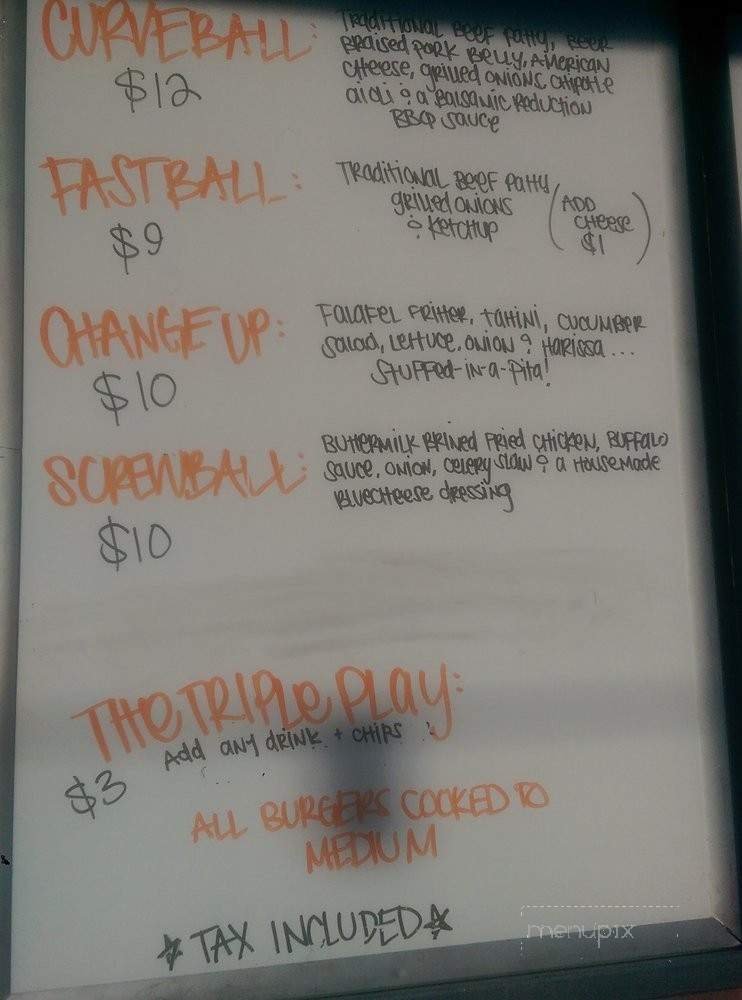 CURVEBALL:
$12
Traditional Beef Patty, Beer
Braised Pork Belly, American
Cheese, grilled onions, chipotle
aioli & a Balsamic Reduction
BBQ sauce
FASTBALL:
$9
Traditional Beef Patty,
grilled onions
& Ketchup
(ADD
CHEESE
$1)
CHANGE UP:
$10
Falafel Fritter, tahini, cucumber
salad, lettuce, onion & Harissa ...
Stuffed-in-a-Pita!
SCREWBALL:
$10
Buttermilk Brined Fried Chicken, Buffalo
sauce, onion, celery slaw & a Housemade
Bluecheese dressing
THE TRIPLE PLAY:
Add any drink + chips
$3
ALL BURGERS COOKED TO
MEDIUM
☆ TAX INCLUDED ☆
menupix